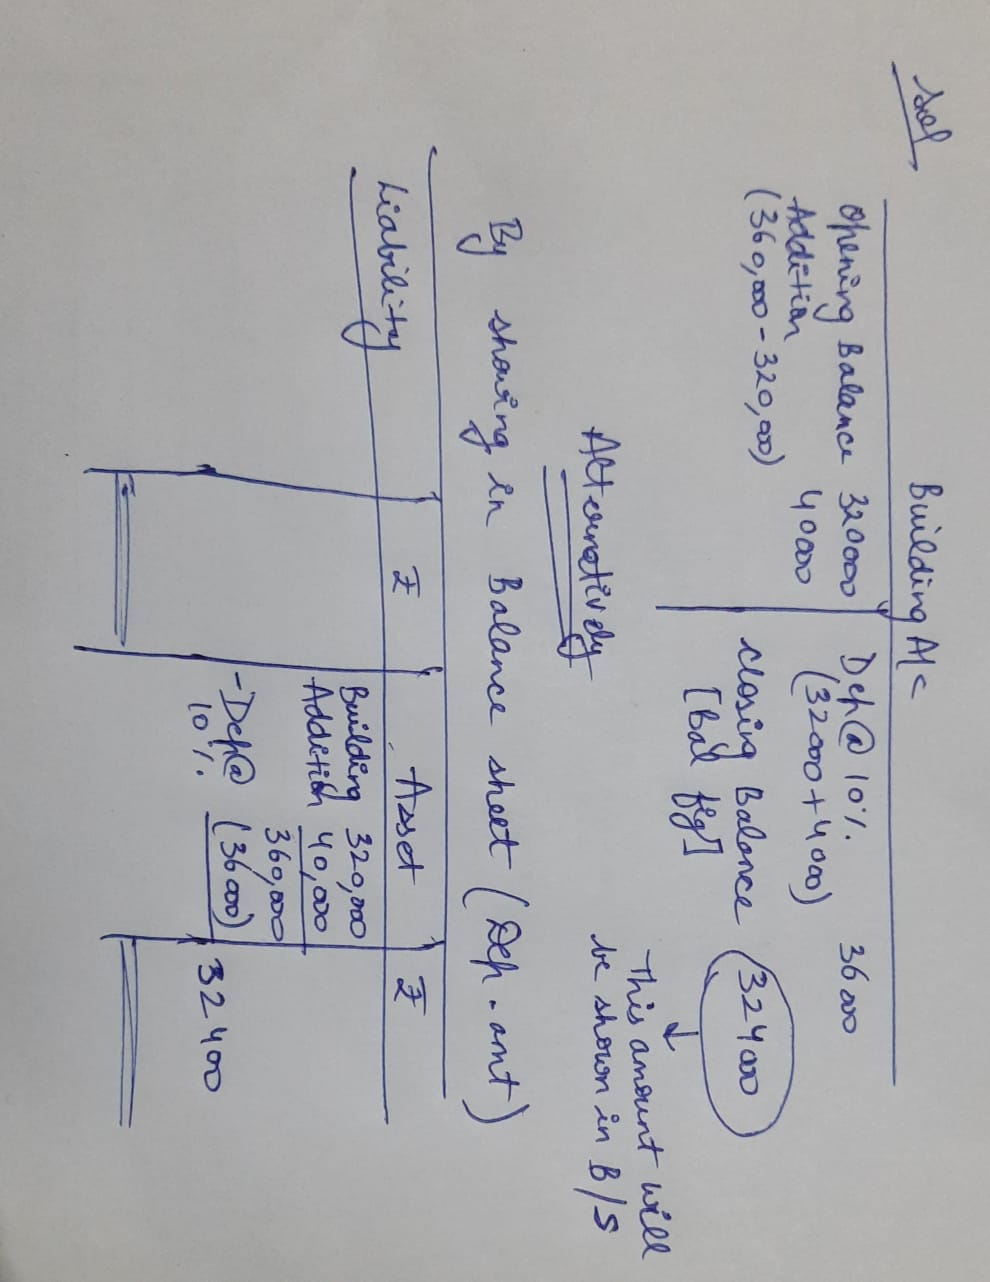 Sol
Building A/c
Opening Balance 320000 Dep@ 10% 36000
Addition 40000 (32000+4000)
(360,000-320,000)
closing Balance (32400
[Bal fig]
↓
This amount will
be shown in B/S
Alternatively
By showing in Balance sheet (Dep. amt)
Liability ₹ Asset ₹
Building 320,000
Addition 40,000
360,000
-Dep@ (36000) 32400
10%